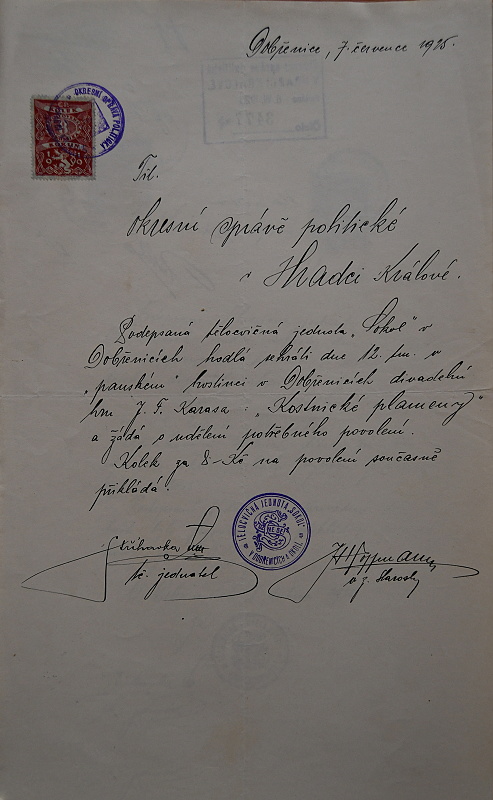 Dobřenice, 7. července 1925.
OKRESNÍ SPRÁVA POLITICKÁ
KOLEK
Tit.
okresní správě politické
v Hradci Králové.
Podepsaná tělocvičná jednota „Sokol" v
Dobřenicích hodlá sehráti dne 12. tm. v
„panském" hostinci v Dobřenicích divadelní
hru J. F. Karasa: „Kostnické plameny"
a žádá o udělení potřebného povolení.
Kolek za 8 Kč na povolení současně
přikládá.
TĚLOCVIČNÁ JEDNOTA „SOKOL"
V DOBŘENICÍCH A OKOLÍ
tč. jednatel
t. č. starosta